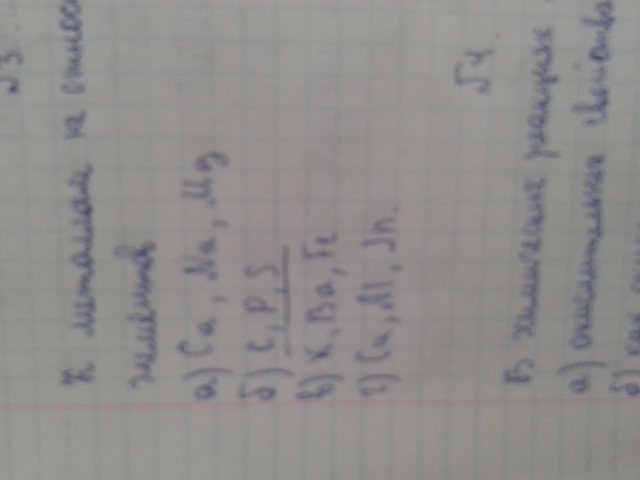 √3.
К металлам не относ
элементы
а) Ca, Na, Mg
б) C, P, S
в) K, Ba, Fe
г) Ca, Al, Zn.
√4.
В химических реакциях
а) окислительные свойства
б) как